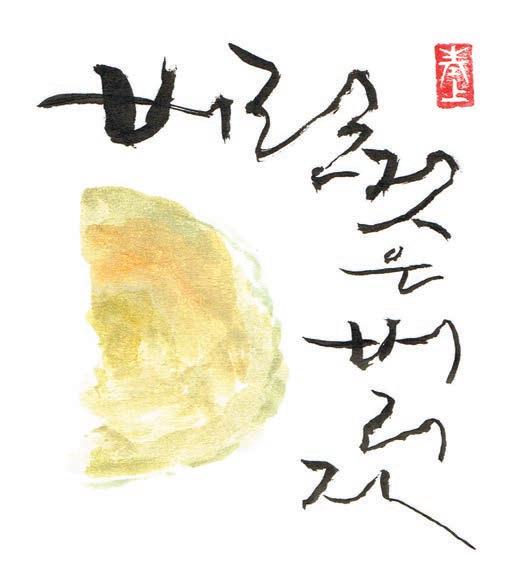 버릴 것은 버리자